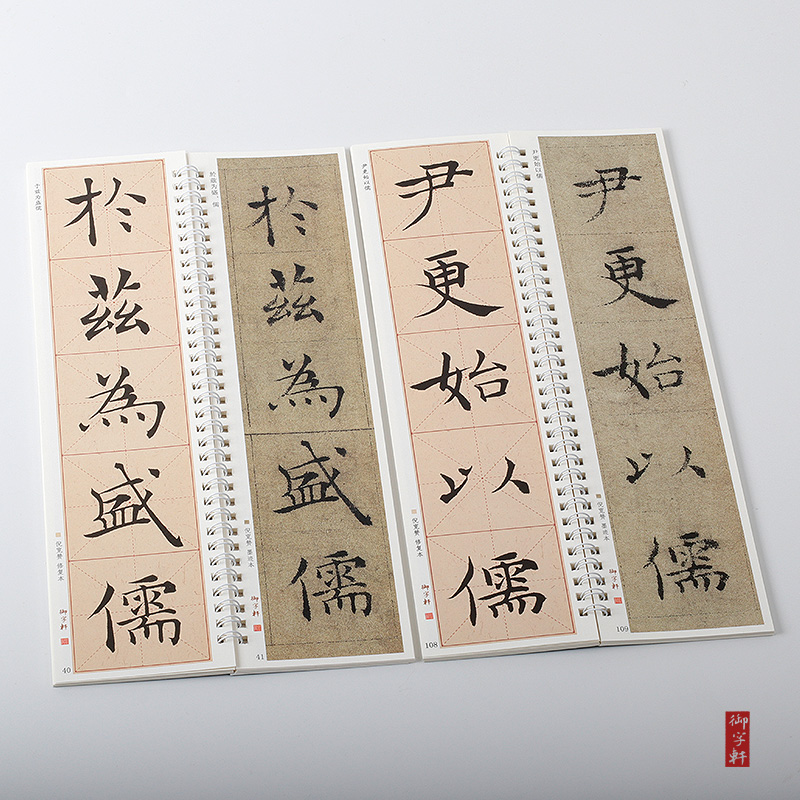 于兹为盛儒
於
茲
為
盛
儒
倪宽赞 修复本
御字軒
40
於兹为盛 儒
於
茲
為
盛
儒
倪宽赞 墨迹本
御字軒
41
尹更始以儒
尹
更
始
以
儒
倪宽赞 修复本
御字軒
108
尹更始以儒
尹
更
始
以
儒
倪宽赞 墨迹本
御字軒
109
御字軒